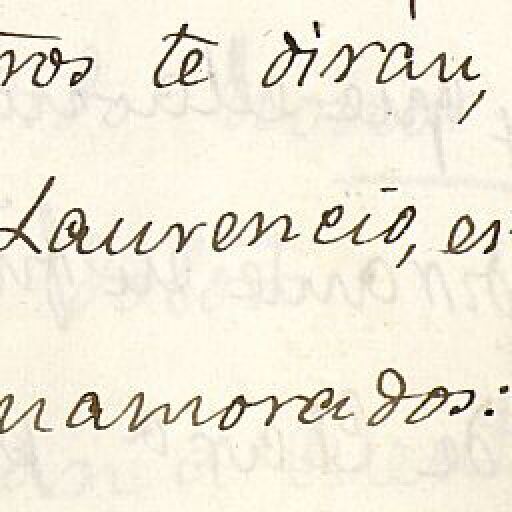 ros te dirán,
Laurencio, es-
namorados: